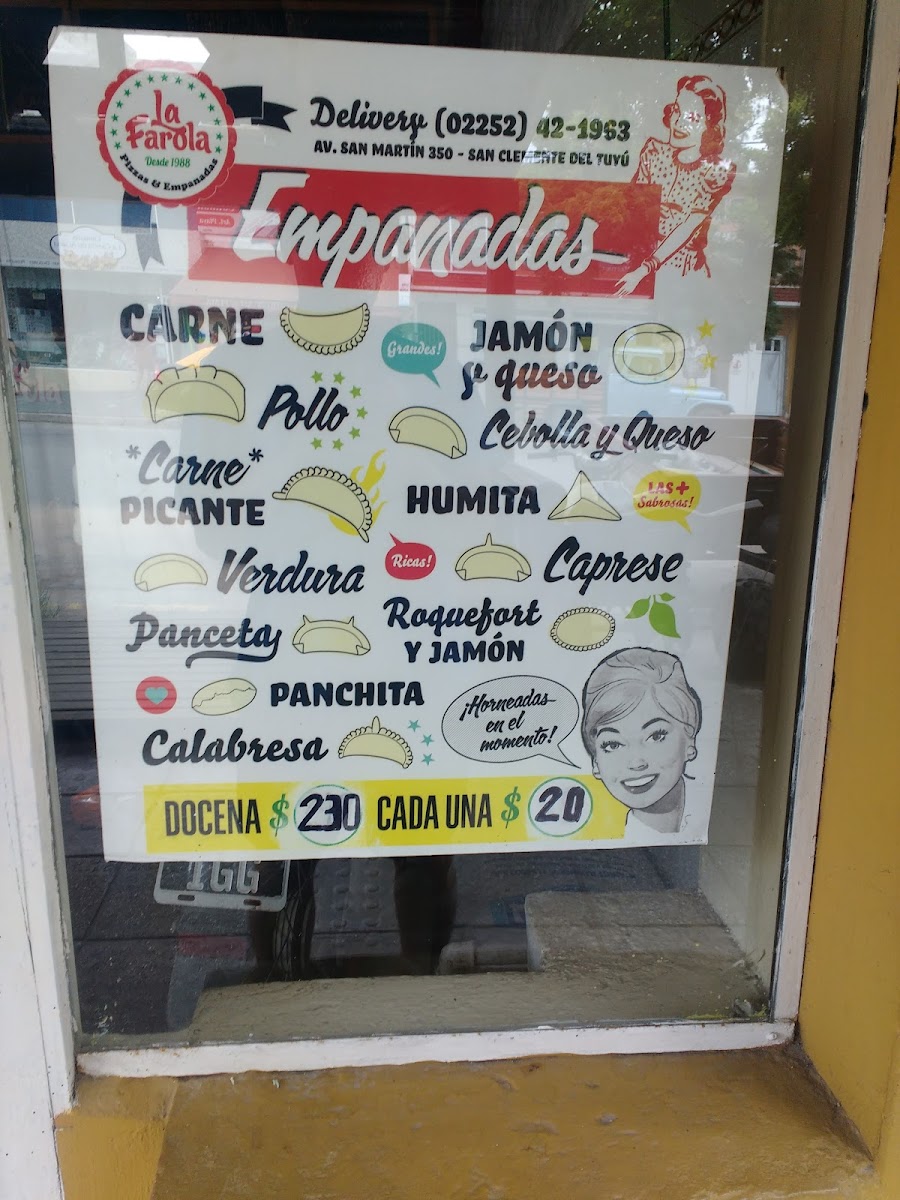 La
Farola
Desde 1988
Pizzas & Empanadas
Delivery (02252) 42-1963
AV. SAN MARTÍN 350 - SAN CLEMENTE DEL TUYÚ
Empanadas
CARNE
Grandes!
JAMÓN
y queso
Pollo
Cebolla y Queso
*Carne*
PICANTE
HUMITA
LAS +
Sabrosas!
Verdura
Ricas!
Caprese
Panceta
Roquefort
Y JAMÓN
PANCHITA
Calabresa
¡Horneadas
en el
momento!
DOCENA $ 230 CADA UNA $ 20
IGG